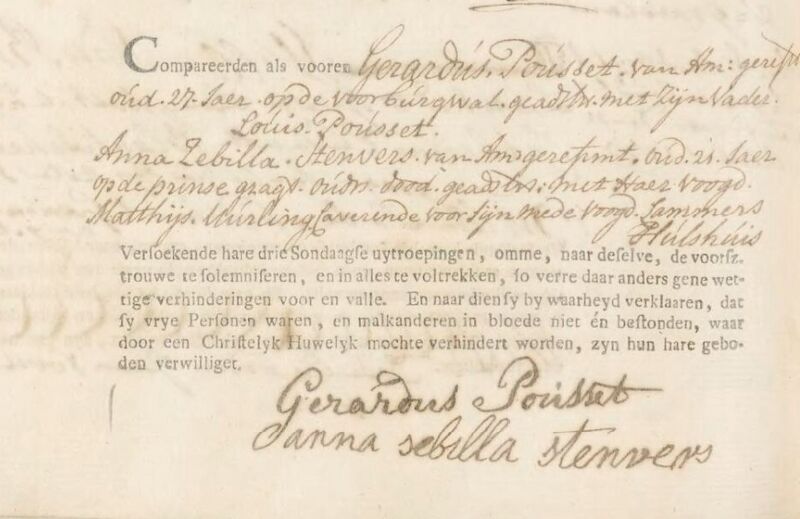 Compareerden als vooren Gerardús. Poússet. van Am: geref:
oud. 27. Jaer. op de voorbúrgwal. geadstr. met zijn vader.
Loúis. Poússet.
Anna Zebilla. Stenvers. van Am: geref:mt. oud. 21. Jaer
op de prinse gragt. oúdrs. dood. geadstrt: met Haer voogd.
Matthijs. Múrling Caverende voor sijn mede voogd. Lammers
Húlshúis
Versoekende hare drie Sondaagse uytroepingen, omme, naar deselve, de voorsz.
trouwe te solemniseren, en in alles te voltrekken, so verre daar anders gene wet-
tige verhinderingen voor en valle. En naar dien sy by waarheyd verklaaren, dat
sy vrye Personen waren, en malkanderen in bloede niet én bestonden, waar
door een Christelyk Huwelyk mochte verhindert worden, zyn hun hare gebo-
den verwilliget.
Gerardus Poússet
anna sebilla stenvers